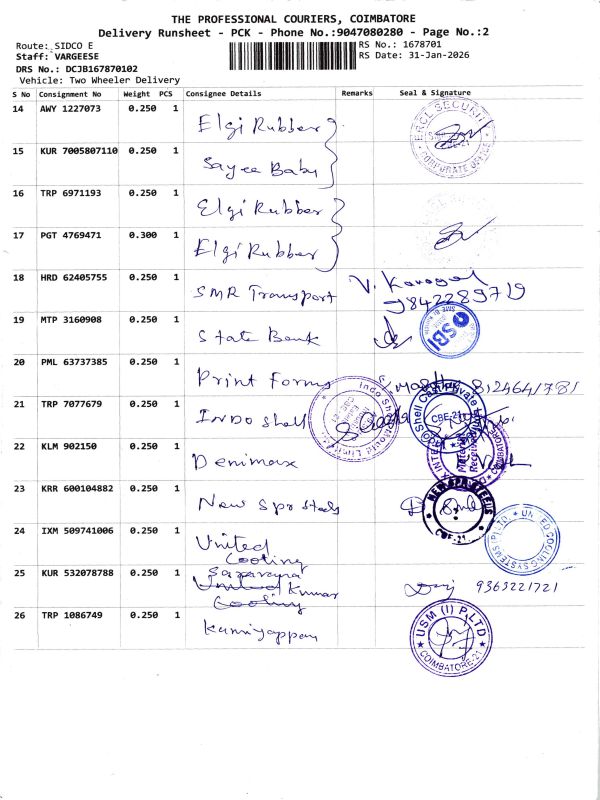 THE PROFESSIONAL COURIERS, COIMBATORE
Delivery Runsheet - PCK - Phone No.:9047080280 - Page No.:2
Route: SIDCO E
RS No.: 1678701
Staff: VARGEESE
RS Date: 31-Jan-2026
DRS No.: DCJB167870102
Vehicle: Two Wheeler Delivery
S No Consignment No Weight PCS Consignee Details Remarks Seal & Signature
14 AWY 1227073 0.250 1 Elgi Rubber
CORPORATE OFFICE
15 KUR 7005807110 0.250 1 Sayee Baby
16 TRP 6971193 0.250 1 Elgi Rubber
17 PGT 4769471 0.300 1 Elgi Rubber
18 HRD 62405755 0.250 1 SMR Transport
9842289719
19 MTP 3160908 0.250 1 State Bank
SBI
20 PML 63737385 0.250 1 Print Forms 8124641781
21 TRP 7077679 0.250 1 INDO Shell
CBE-21
22 KLM 902150 0.250 1 Denimax
23 KRR 600104882 0.250 1 New Spr Steels
NEW SPR STEELS
CBE-21
24 IXM 509741006 0.250 1 United Cooling
UNITED COOLING SYSTEMS (P) LTD
25 KUR 532078788 0.250 1 Saravana Kumar
United Cooling
9363221721
26 TRP 1086749 0.250 1 Kanniyappan
USM (I) P LTD
COIMBATORE-21